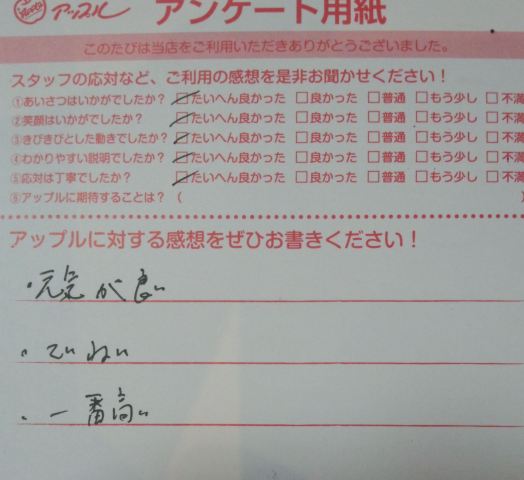 アップル アンケート用紙
このたびは当店をご利用いただきありがとうございました。
スタッフの応対など、ご利用の感想を是非お聞かせください！
①あいさつはいかがでしたか？ □たいへん良かった □良かった □普通 □もう少し □不満
②笑顔はいかがでしたか？ □たいへん良かった □良かった □普通 □もう少し □不満
③きびきびとした動きでしたか？ □たいへん良かった □良かった □普通 □もう少し □不満
④わかりやすい説明でしたか？ □たいへん良かった □良かった □普通 □もう少し □不満
⑤応対は丁寧でしたか？ □たいへん良かった □良かった □普通 □もう少し □不満
⑥アップルに期待することは？（ ）
アップルに対する感想をぜひお書きください！
・元気が良い
・ていねい
・一番高い